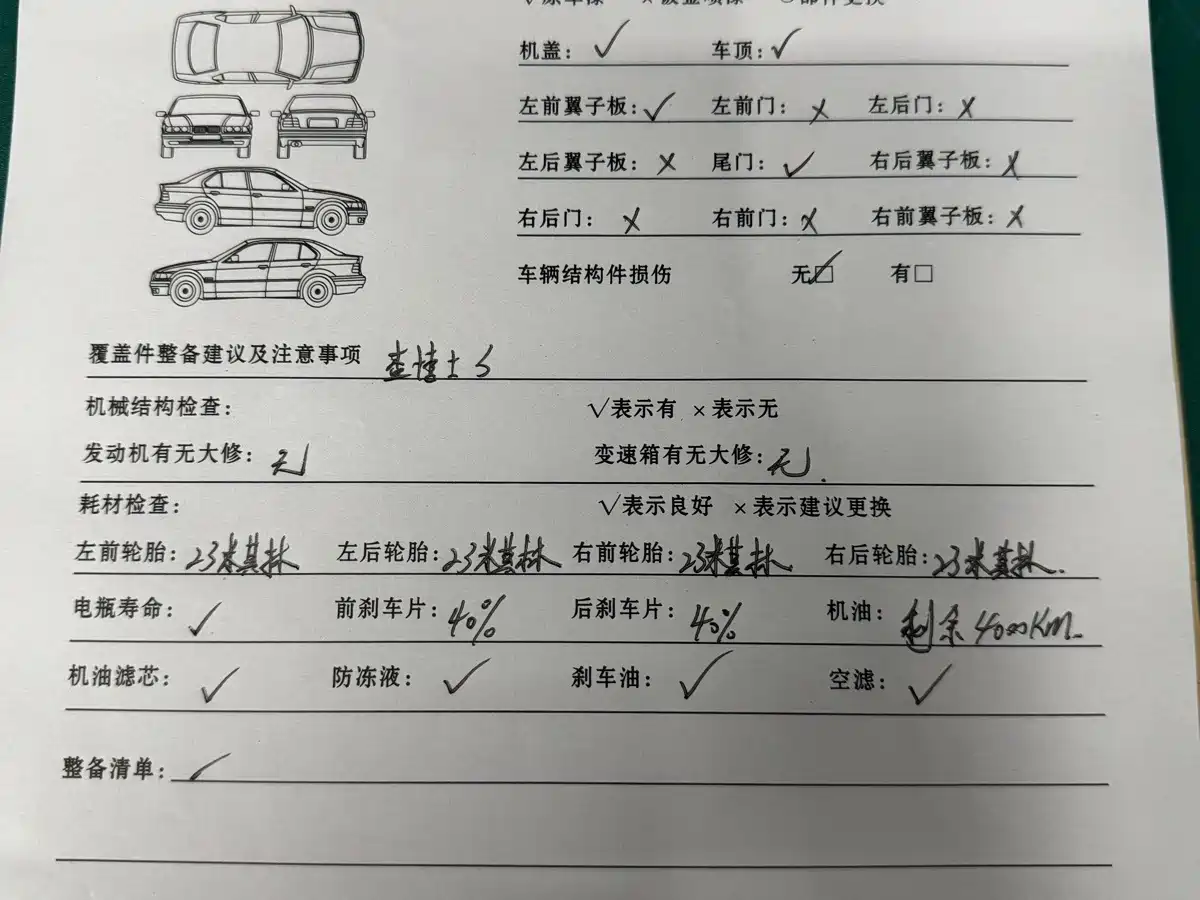 √原车漆 ×钣金喷漆 ○部件更换
机盖：√ 车顶：√
左前翼子板：√ 左前门：× 左后门：×
左后翼子板：× 尾门：√ 右后翼子板：×
右后门：× 右前门：× 右前翼子板：×
车辆结构件损伤 无☑ 有□
覆盖件整备建议及注意事项 查博士S
机械结构检查： √表示有 ×表示无
发动机有无大修：无 变速箱有无大修：无.
耗材检查： √表示良好 ×表示建议更换
左前轮胎：23米其林 左后轮胎：23米其林 右前轮胎：23米其林 右后轮胎：23米其林.
电瓶寿命：√ 前刹车片：40% 后刹车片：40% 机油：剩余4000KM.
机油滤芯：√ 防冻液：√ 刹车油：√ 空滤：√
整备清单：√